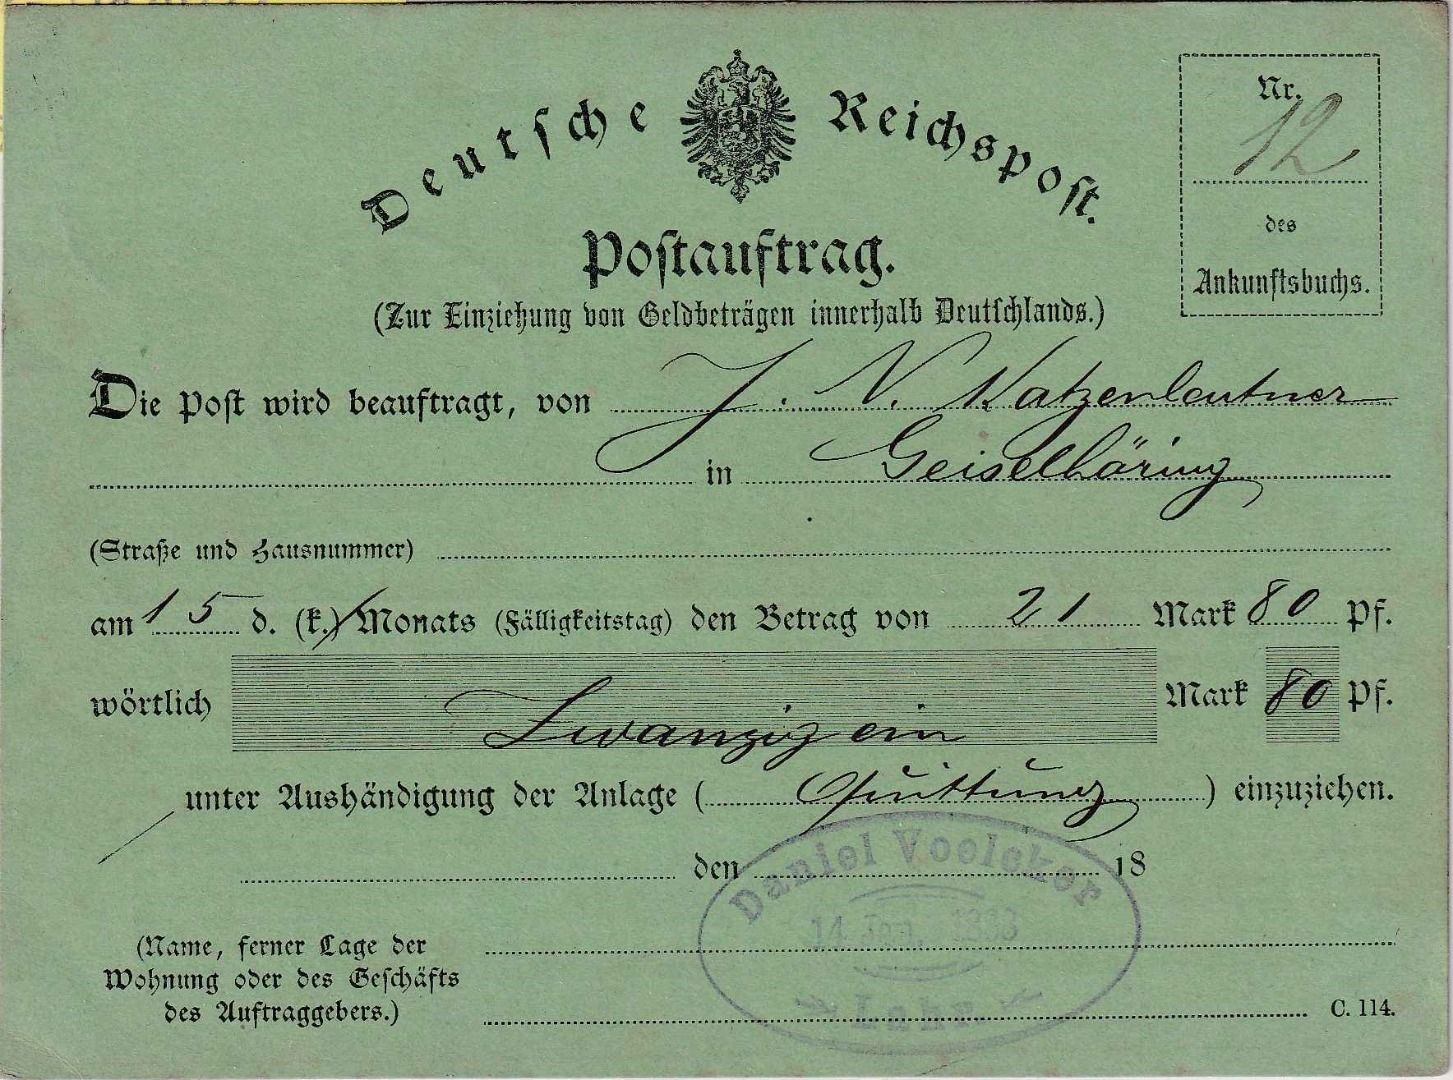 Deutsche Reichspost.
Nr. 12
des
Ankunftsbuchs.
Postauftrag.
(Zur Einziehung von Geldbeträgen innerhalb Deutschlands.)
Die Post wird beauftragt, von J. N. Katzenleutner
in Geiselhöring
(Straße und Hausnummer)
am 15 d. (k.) Monats (Fälligkeitstag) den Betrag von 21 Mark 80 Pf.
wörtlich Zwanzig ein Mark 80 Pf.
unter Aushändigung der Anlage (Quittung) einzuziehen.
den 18
Daniel Voelcker
14 Jan. 1888
Lahr.
(Name, ferner Lage der
Wohnung oder des Geschäfts
des Auftraggebers.)
C. 114.